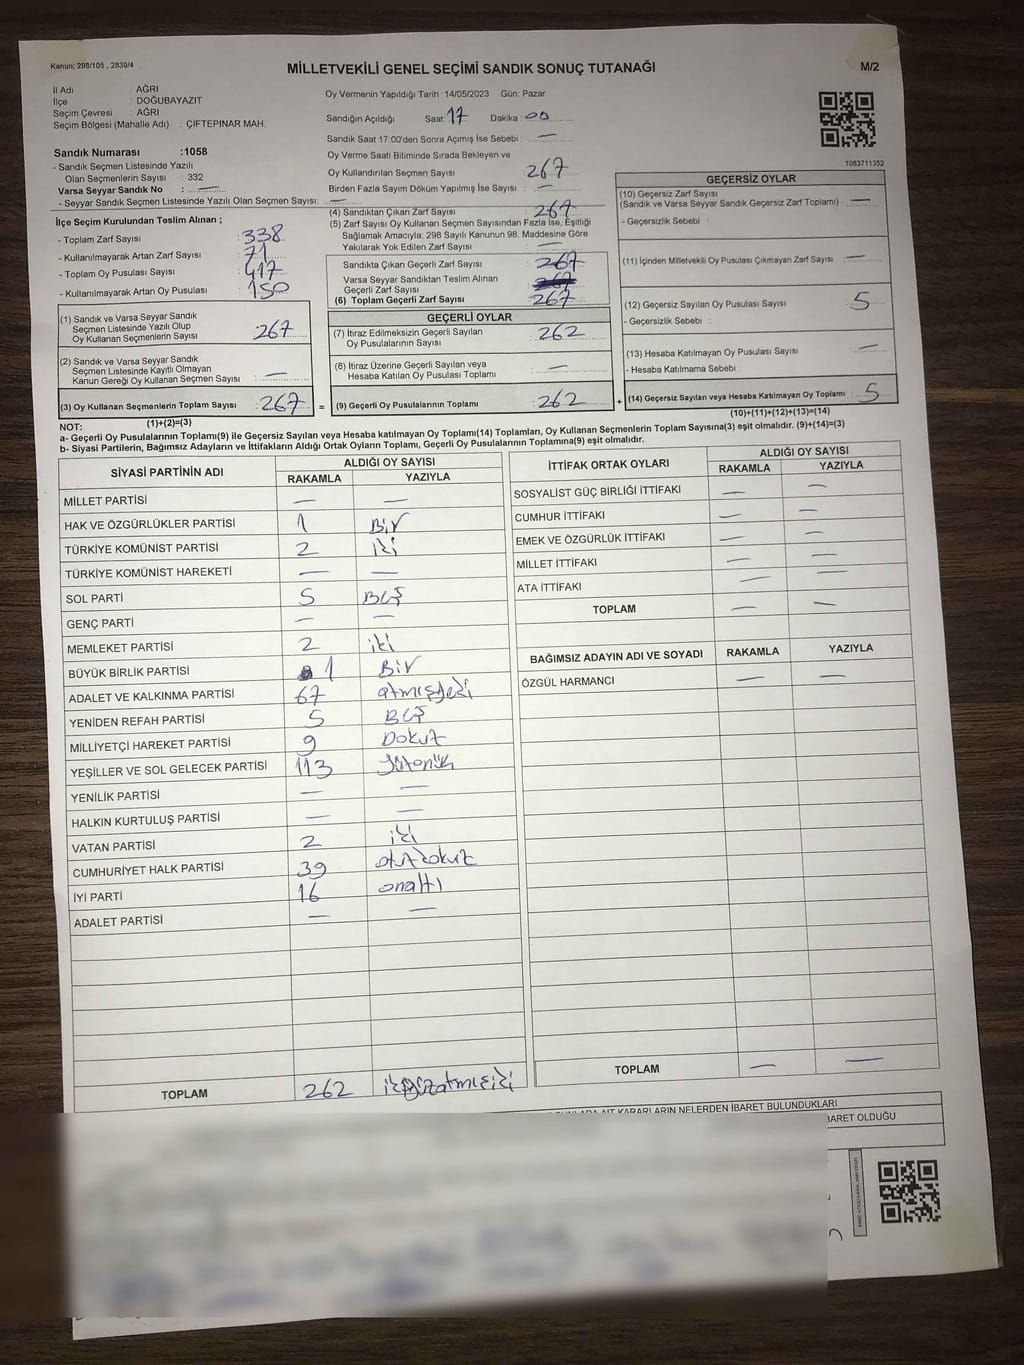 Kanun; 298/105 , 2839/4
MİLLETVEKİLİ GENEL SEÇİMİ SANDIK SONUÇ TUTANAĞI
M/2
İl Adı : AĞRI
İlçe : DOĞUBAYAZIT
Seçim Çevresi : AĞRI
Seçim Bölgesi (Mahalle Adı) : ÇİFTEPINAR MAH.
Sandık Numarası :1058
- Sandık Seçmen Listesinde Yazılı
Olan Seçmenlerin Sayısı : 332
Varsa Seyyar Sandık No : —
- Seyyar Sandık Seçmen Listesinde Yazılı Olan Seçmen Sayısı: —
Oy Vermenin Yapıldığı Tarih :14/05/2023 Gün: Pazar
Sandığın Açıldığı Saat 17 Dakika 00
Sandık Saat 17:00'den Sonra Açılmış İse Sebebi : —
Oy Verme Saati Bitiminde Sırada Bekleyen ve
Oy Kullandırılan Seçmen Sayısı : 267
Birden Fazla Sayım Döküm Yapılmış İse Sayısı : —
1083711352
İlçe Seçim Kurulundan Teslim Alınan ;
- Toplam Zarf Sayısı : 338
- Kullanılmayarak Artan Zarf Sayısı : 71
- Toplam Oy Pusulası Sayısı : 417
- Kullanılmayarak Artan Oy Pusulası : 150
(1) Sandık ve Varsa Seyyar Sandık
Seçmen Listesinde Yazılı Olup
Oy Kullanan Seçmenlerin Sayısı : 267
(2) Sandık ve Varsa Seyyar Sandık
Seçmen Listesinde Kayıtlı Olmayan
Kanun Gereği Oy Kullanan Seçmen Sayısı : —
(3) Oy Kullanan Seçmenlerin Toplam Sayısı : 267
(1)+(2)=(3)
(4) Sandıktan Çıkan Zarf Sayısı : 267
(5) Zarf Sayısı Oy Kullanan Seçmen Sayısından Fazla İse, Eşitliği
Sağlamak Amacıyla; 298 Sayılı Kanunun 98. Maddesine Göre
Yakılarak Yok Edilen Zarf Sayısı : —
Sandıkta Çıkan Geçerli Zarf Sayısı : 267
Varsa Seyyar Sandıktan Teslim Alınan
Geçerli Zarf Sayısı : 267
(6) Toplam Geçerli Zarf Sayısı : 267
GEÇERLİ OYLAR
(7) İtiraz Edilmeksizin Geçerli Sayılan
Oy Pusulalarının Sayısı : 262
(8) İtiraz Üzerine Geçerli Sayılan veya
Hesaba Katılan Oy Pusulası Toplamı : —
= (9) Geçerli Oy Pusulalarının Toplamı : 262
GEÇERSİZ OYLAR
(10) Geçersiz Zarf Sayısı
(Sandık ve Varsa Seyyar Sandık Geçersiz Zarf Toplamı) : —
- Geçersizlik Sebebi :
(11) İçinden Milletvekili Oy Pusulası Çıkmayan Zarf Sayısı : —
(12) Geçersiz Sayılan Oy Pusulası Sayısı : 5
- Geçersizlik Sebebi :
(13) Hesaba Katılmayan Oy Pusulası Sayısı : —
- Hesaba Katılmama Sebebi :
+ (14) Geçersiz Sayılan veya Hesaba Katılmayan Oy Toplamı : 5
(10)+(11)+(12)+(13)=(14)
NOT:
a- Geçerli Oy Pusulalarının Toplamı(9) ile Geçersiz Sayılan veya Hesaba katılmayan Oy Toplamı(14) Toplamları, Oy Kullanan Seçmenlerin Toplam Sayısına(3) eşit olmalıdır. (9)+(14)=(3)
b- Siyasi Partilerin, Bağımsız Adayların ve İttifakların Aldığı Ortak Oyların Toplamı, Geçerli Oy Pusulalarının Toplamına(9) eşit olmalıdır.
SİYASİ PARTİNİN ADI
ALDIĞI OY SAYISI
RAKAMLA YAZIYLA
MİLLET PARTİSİ — —
HAK VE ÖZGÜRLÜKLER PARTİSİ 1 Bir
TÜRKİYE KOMÜNİST PARTİSİ 2 iki
TÜRKİYE KOMÜNİST HAREKETİ — —
SOL PARTİ 5 Beş
GENÇ PARTİ — —
MEMLEKET PARTİSİ 2 iki
BÜYÜK BİRLİK PARTİSİ 1 Bir
ADALET VE KALKINMA PARTİSİ 67 atmışyedi
YENİDEN REFAH PARTİSİ 5 Beş
MİLLİYETÇİ HAREKET PARTİSİ 9 Dokuz
YEŞİLLER VE SOL GELECEK PARTİSİ 113
YENİLİK PARTİSİ — —
HALKIN KURTULUŞ PARTİSİ — —
VATAN PARTİSİ 2 iki
CUMHURİYET HALK PARTİSİ 39 otuzdokuz
İYİ PARTİ 16 onaltı
ADALET PARTİSİ — —
TOPLAM 262 ikiyüzatmışiki
İTTİFAK ORTAK OYLARI
ALDIĞI OY SAYISI
RAKAMLA YAZIYLA
SOSYALİST GÜÇ BİRLİĞİ İTTİFAKI — —
CUMHUR İTTİFAKI — —
EMEK VE ÖZGÜRLÜK İTTİFAKI — —
MİLLET İTTİFAKI — —
ATA İTTİFAKI — —
TOPLAM — —
BAĞIMSIZ ADAYIN ADI VE SOYADI RAKAMLA YAZIYLA
ÖZGÜL HARMANCI — —
TOPLAM — —
AİT KARARLARIN NELERDEN İBARET BULUNDUKLARI
BARET OLDUĞU